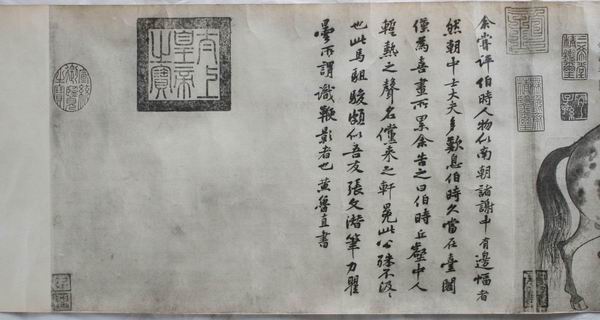 余嘗評伯時人物似南朝諸謝中有邊幅者
然朝中士大夫多歎息伯時久當在臺閣
僅為喜畫所累余告之曰伯時丘壑中人
輕熱之聲名儻來之軒冕此公殊不汲汲
也此馬駔駿頗似吾友張文潛筆力瞿
曇所謂識鞭影者也黃魯直書
太上皇帝之寶